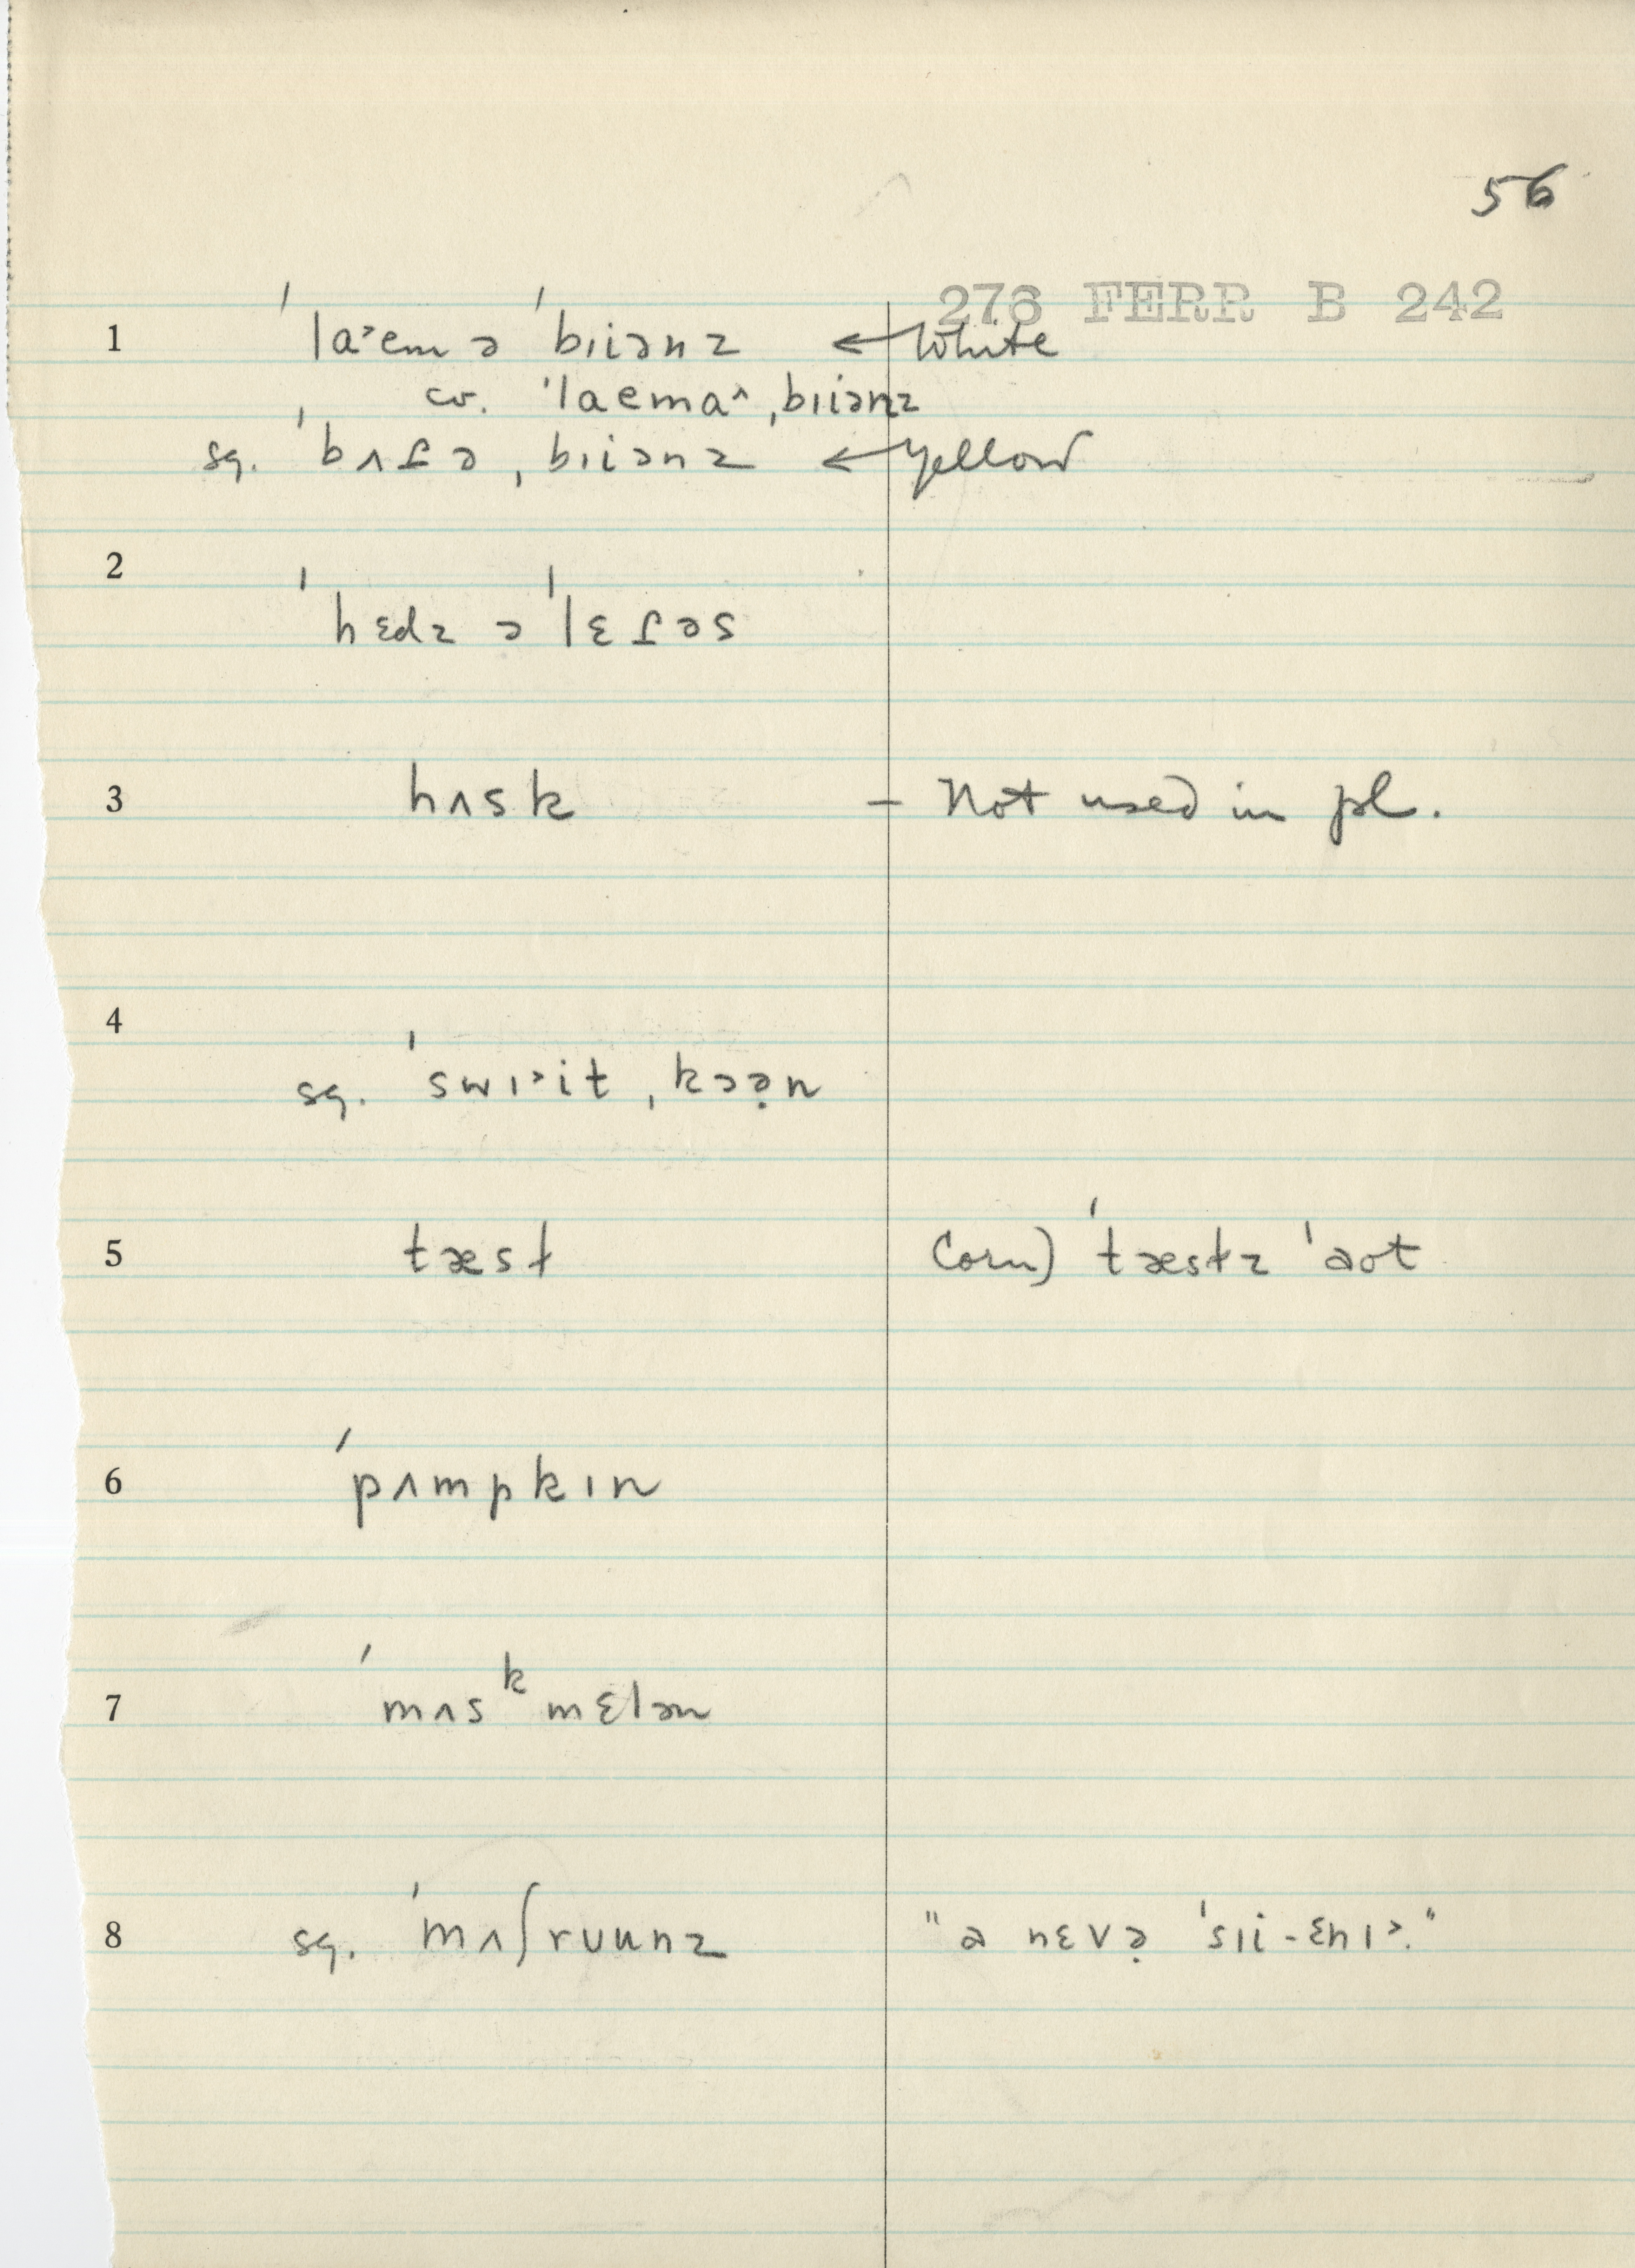 56
276 FERR B 242
1 ˈla˃em ə ˈbɪiənz ← White
cv. ˈlaema^ ˌbɪiənz
sg. ˈbʌɾə ˌbɪiənz ← yellow
2 ˈhɛdz ə ˈlɛɾəs
3 hʌsk – Not used in pl.
4 sg. ˈswɪ˃it ˌkɔə̣n
5 tæst Corn) ˈtæstz ˈaʊt
6 ˈpʌmpkɪn
7 ˈmʌsᵏmɛlən
8 sg. ˈmʌʃrʊunz "a nɛvə̣ ˈsɪi-ɛnɪ˃."